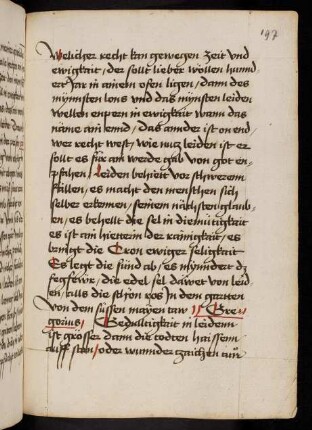 197
Welicher recht kan gewegen zeit vnd
ewigkait / der sollt lieber wöllen hunnd
ert Jar in ainem ofen ligen / dann des
mynnsten lons vnd das mynsten leiden
wellen enpern in ewigkait wann das
näme ain ennd / das annder ist on end
wer recht west / wie nutz leiden ist er
sollt es für ain werde gab von got en
pfahen / Leiden behüet vor schwerem
fällen / es macht den menschen sich
selber erkennen / seinem nächsten glaub
en / es behellt die sel in diemüttigkait
es ist ain hietterin der rainigkait / es
bringt die Cron ewiger seligkait
Es legt die sünd ab / es mynndert dz
fegfewr / die edel sel dawet von leid
en / alls die schön ros In dem gartten
von dem süssen mayen taw Gre
gorius / Gedulltigkait in leidenn
ist grösser dann die todten haissenn
auff sten / oder wunnder zaichen tün